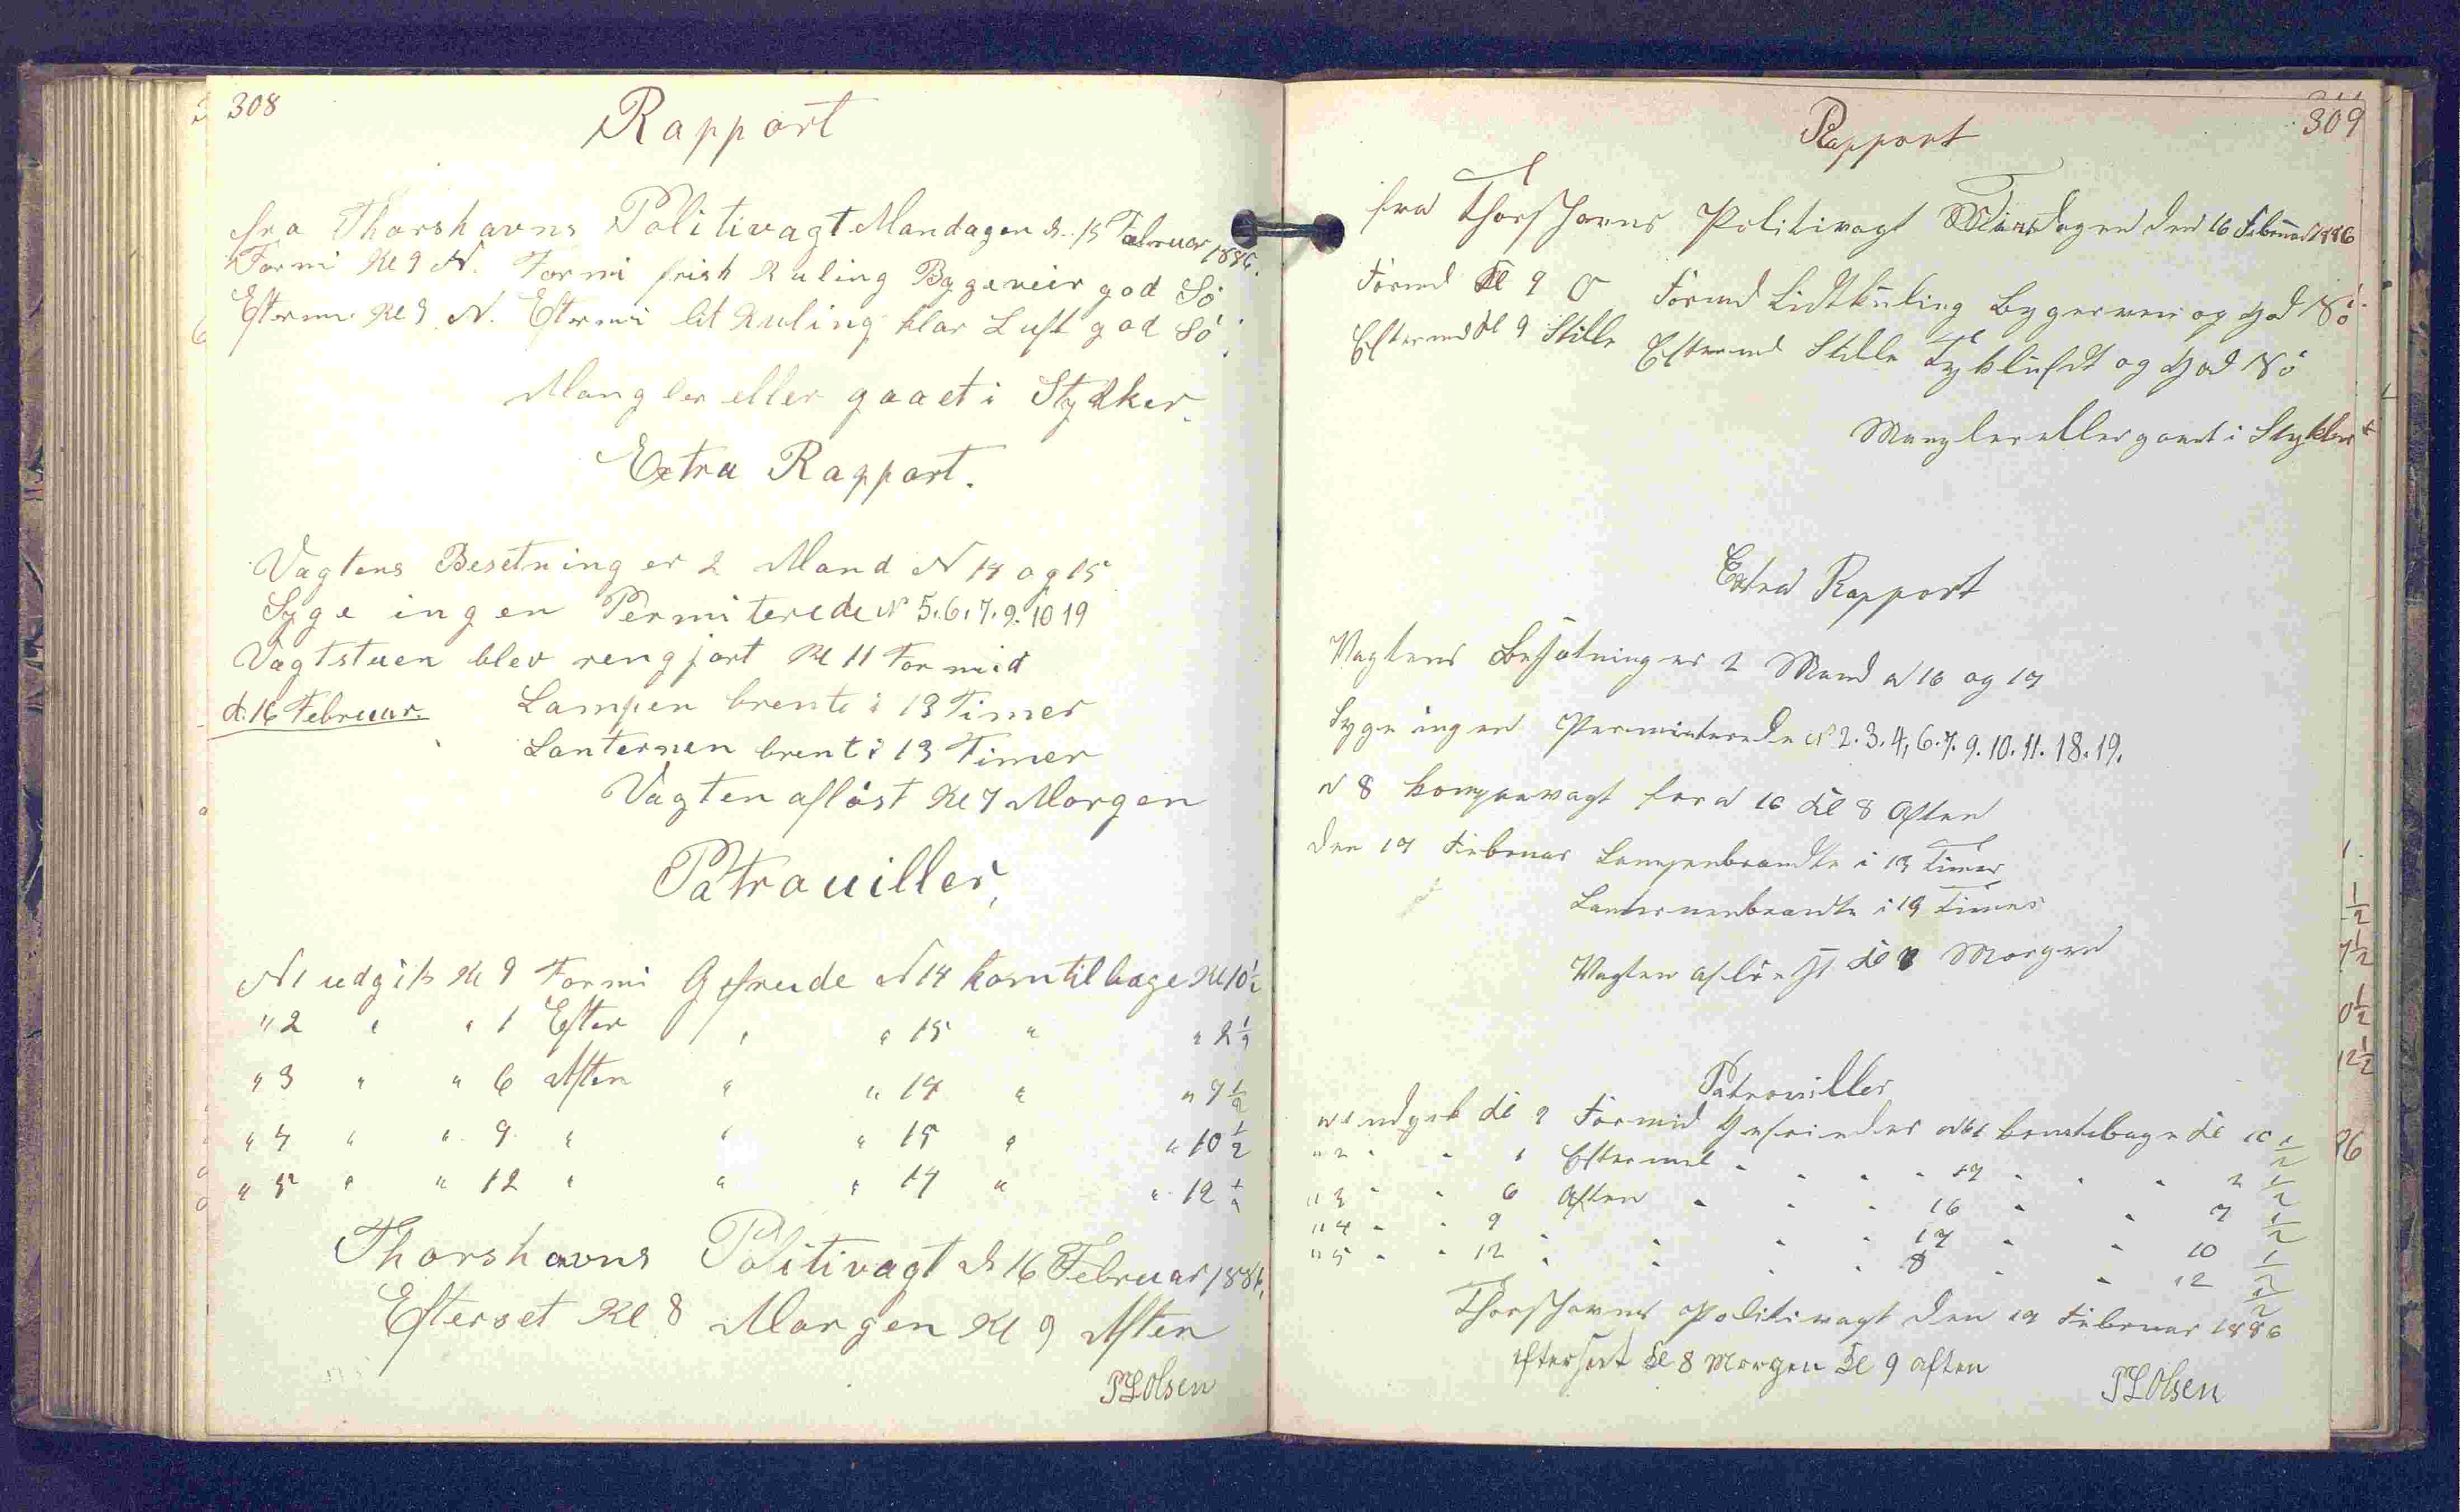 308
Rapport
fra Thorshavns Politivagt Mandagen d. 15 Februar 1886.
Formi Kl 9 N. Formi frisk Kuling Bygeveir god Sö
Efterm Kl 9 N. Eftermi lit Kuling klar Luft god Sö
Mangler eller gaaet i Stykker.
Extra Rapport.
Vagtens Besetning er 2 Mand N 14 og 15
Syge ingen Permiterede N 5.6.7.9.10 19
Vagtstuen blev rengjort Kl 11 Formid
d. 16 Februar. Lampen brente i 13 Timer
Lanternen brente i 13 Timer
Vagten aflöst Kl 7 Morgen
Patrouiller,
N1 udgik Kl 9 Formi Gefreide N 14 kom tilbage Kl 10 1/2
" 2 " " 1 Efter " " 15 " " 2 1/2
" 3 " " 6 Aften " " 14 " " 7 1/2
" 4 " " 9 " " " 15 " " 10 1/2
" 5 " " 12 " " " 14 " " 12 1/2
Thorshavns Politivagt d 16 Februar 1886,
Efterset Kl 8 Morgen Kl 9 Aften
PLOlsen
309
Rapport
fra Thorshavns Politivagt Tirsdagen den 16 Februar 1886
Formd Kl 9 O Formd Lidtkuling Bygerveir og God Sö
Eftermd Kl 9 Stille Eftermd Stille Tykluft og God Sö
Mangler eller gaaet i Stykker
Extra Rapport
Vagtens Besætning er 2 Mand N 16 og 17
Syge ingen Permiterede N 2.3.4,6.7.9.10.11.18.19.
N 8 Kompanvagt for N 16 Kl 8 Aften
Den 17 Februar Lampen brændte i 13 Timer
Lanternen brændte i 13 Timer
Vagten aflöst Kl Morgen
Patrouiller
N 1 udgik Kl 9 Formid Gefreider N 16 kom tilbage Kl 10 1/2
" 2 " " 1 Eftermd " " " 17 " " 2 1/2
" 3 " " 6 Aften " " " 16 " " 7 1/2
" 4 " " 9 " " " " 17 " " 10 1/2
" 5 " " 12 " " " " 8 " " 12 1/2
Thorshavns Politivagt den 17 Februar 1886
Efterset Kl 8 Morgen Kl 9 Aften
PLOlsen